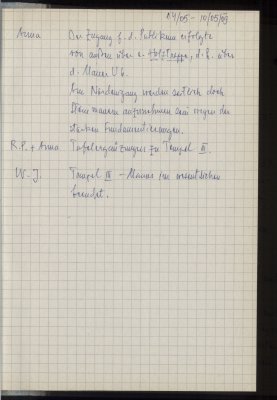 04/05 - 10/05/03
Anna Der Zugang f. d. Publikum erfolgte
von außen über e. Holztreppe, d. h. über
d. Mauer U6.
Am Nordeingang werden seitlich doch
Steinmauern aufzunehmen sein wegen der
starken Fundamentierungen.
R.P. + Anna Tempel II.
W.-J. Tempel III - Mauer im wesentlichen
beendet.